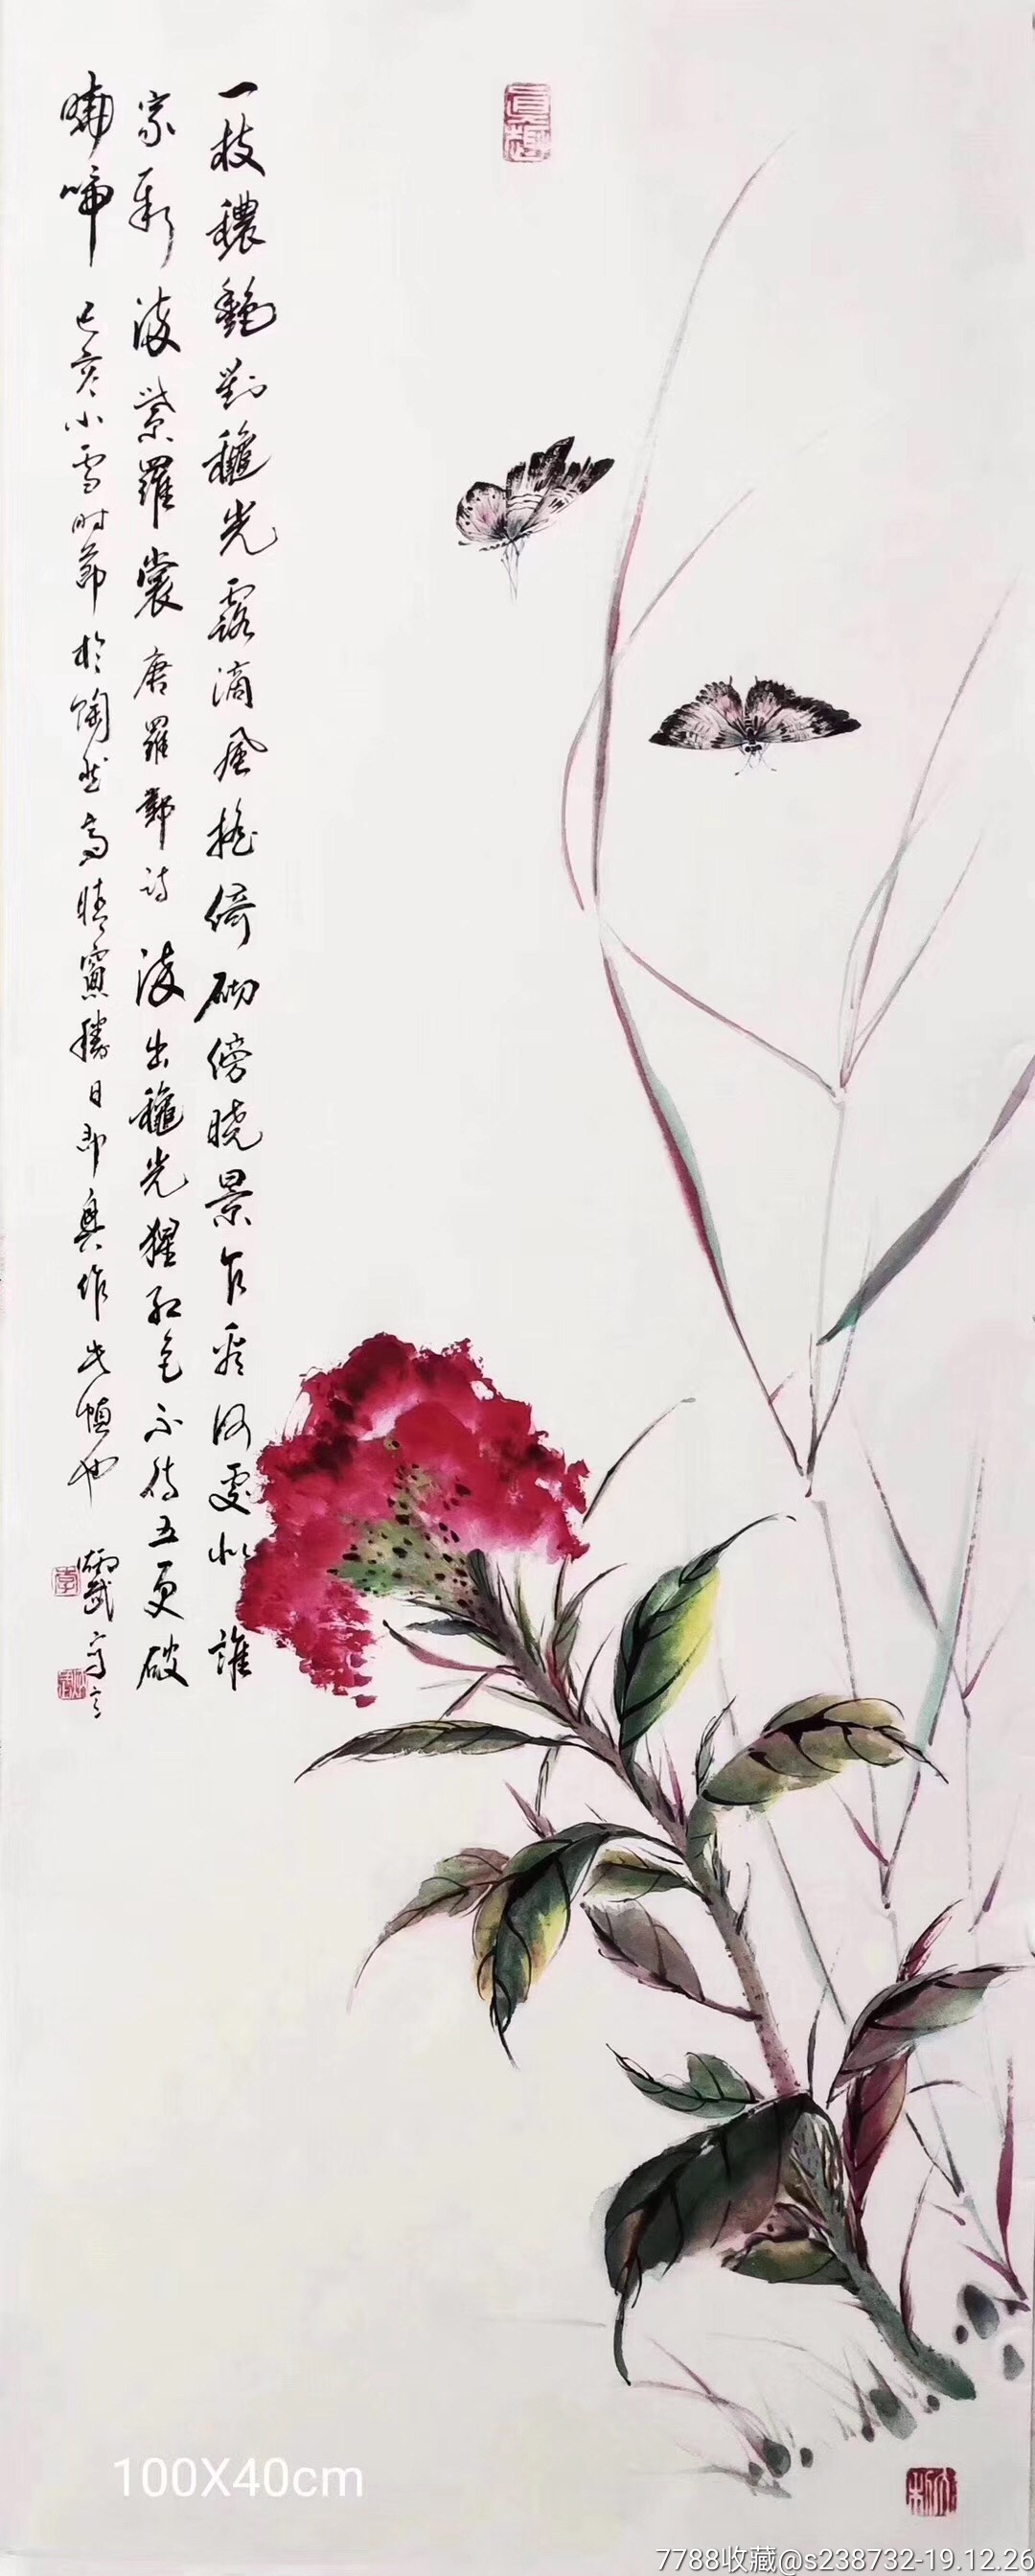 一枝穠艷對龝光露滴風搖倚砌傍曉景乍看何處似誰
家新染紫羅裳 唐羅鄴詩 染出龝光猩紅色不待五更破
曉啼 己亥小雪時節於陶然高晴窗勝日即興作此幀也
100X40cm
7788收藏@s238732-19.12.26